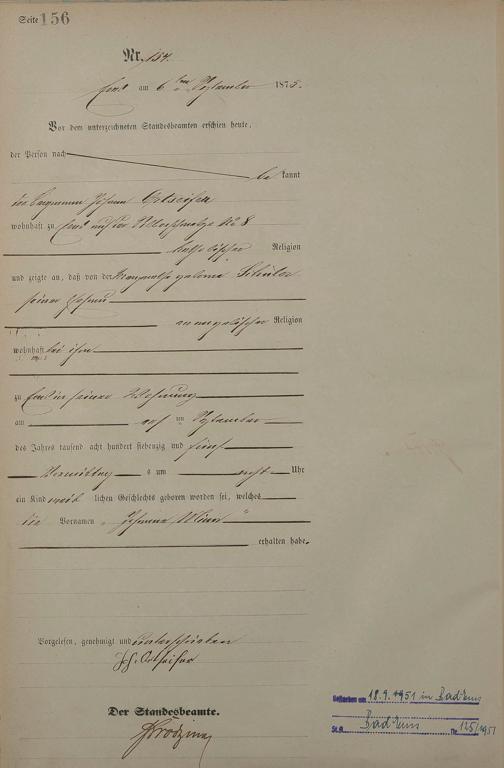 Seite 156
Nr. 154.
Ems am 6ten September 1875.
Vor dem unterzeichneten Standesbeamten erschien heute,
der Person nach
be kannt
der Bergmann Johann
wohnhaft zu Ems auf der No 8
katholischer Religion
und zeigte an, daß von der geborne
seiner Ehefrau
evangelischer Religion
wohnhaft bei ihm
zu Ems in seiner Wohnung
am ten September
des Jahres tausend acht hundert siebenzig und fünf
Vormittags um acht Uhr
ein Kind weib lichen Geschlechts geboren worden sei, welches
die Vornamen
erhalten habe.
Vorgelesen, genehmigt und unterschrieben
Der Standesbeamte.
Gestorben am 18.9.1951 in Bad Ems
St. A. Bad Ems Nr. 125/1951